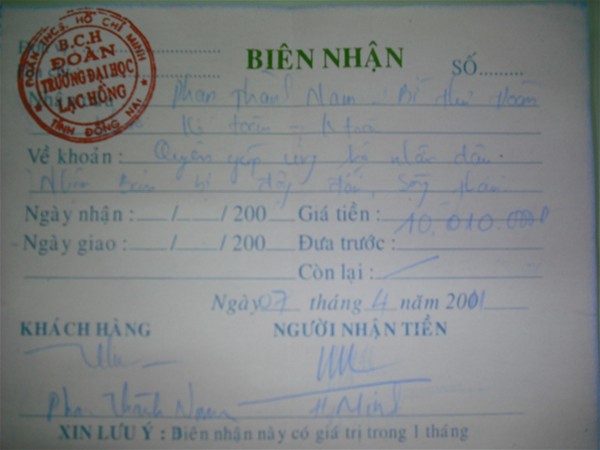 ĐOÀN TNCS HỒ CHÍ MINH
B.C.H
ĐOÀN
TRƯỜNG ĐẠI HỌC
LẠC HỒNG
TỈNH ĐỒNG NAI
BIÊN NHẬN
SỐ.........
Phan Thành Nam - Bí thư Đoàn
Kế toán -
Về khoản : Quyên góp ủng hộ nhân dân
Nhật Bản bị động đất, sóng thần
Ngày nhận : / / 200 Giá tiền : 10.010.000đ
Ngày giao : / / 200 Đưa trước :
Còn lại :
Ngày 07 tháng 4 năm 2001
KHÁCH HÀNG NGƯỜI NHẬN TIỀN
Phan Thành Nam
XIN LƯU Ý : Biên nhận này có giá trị trong 1 tháng